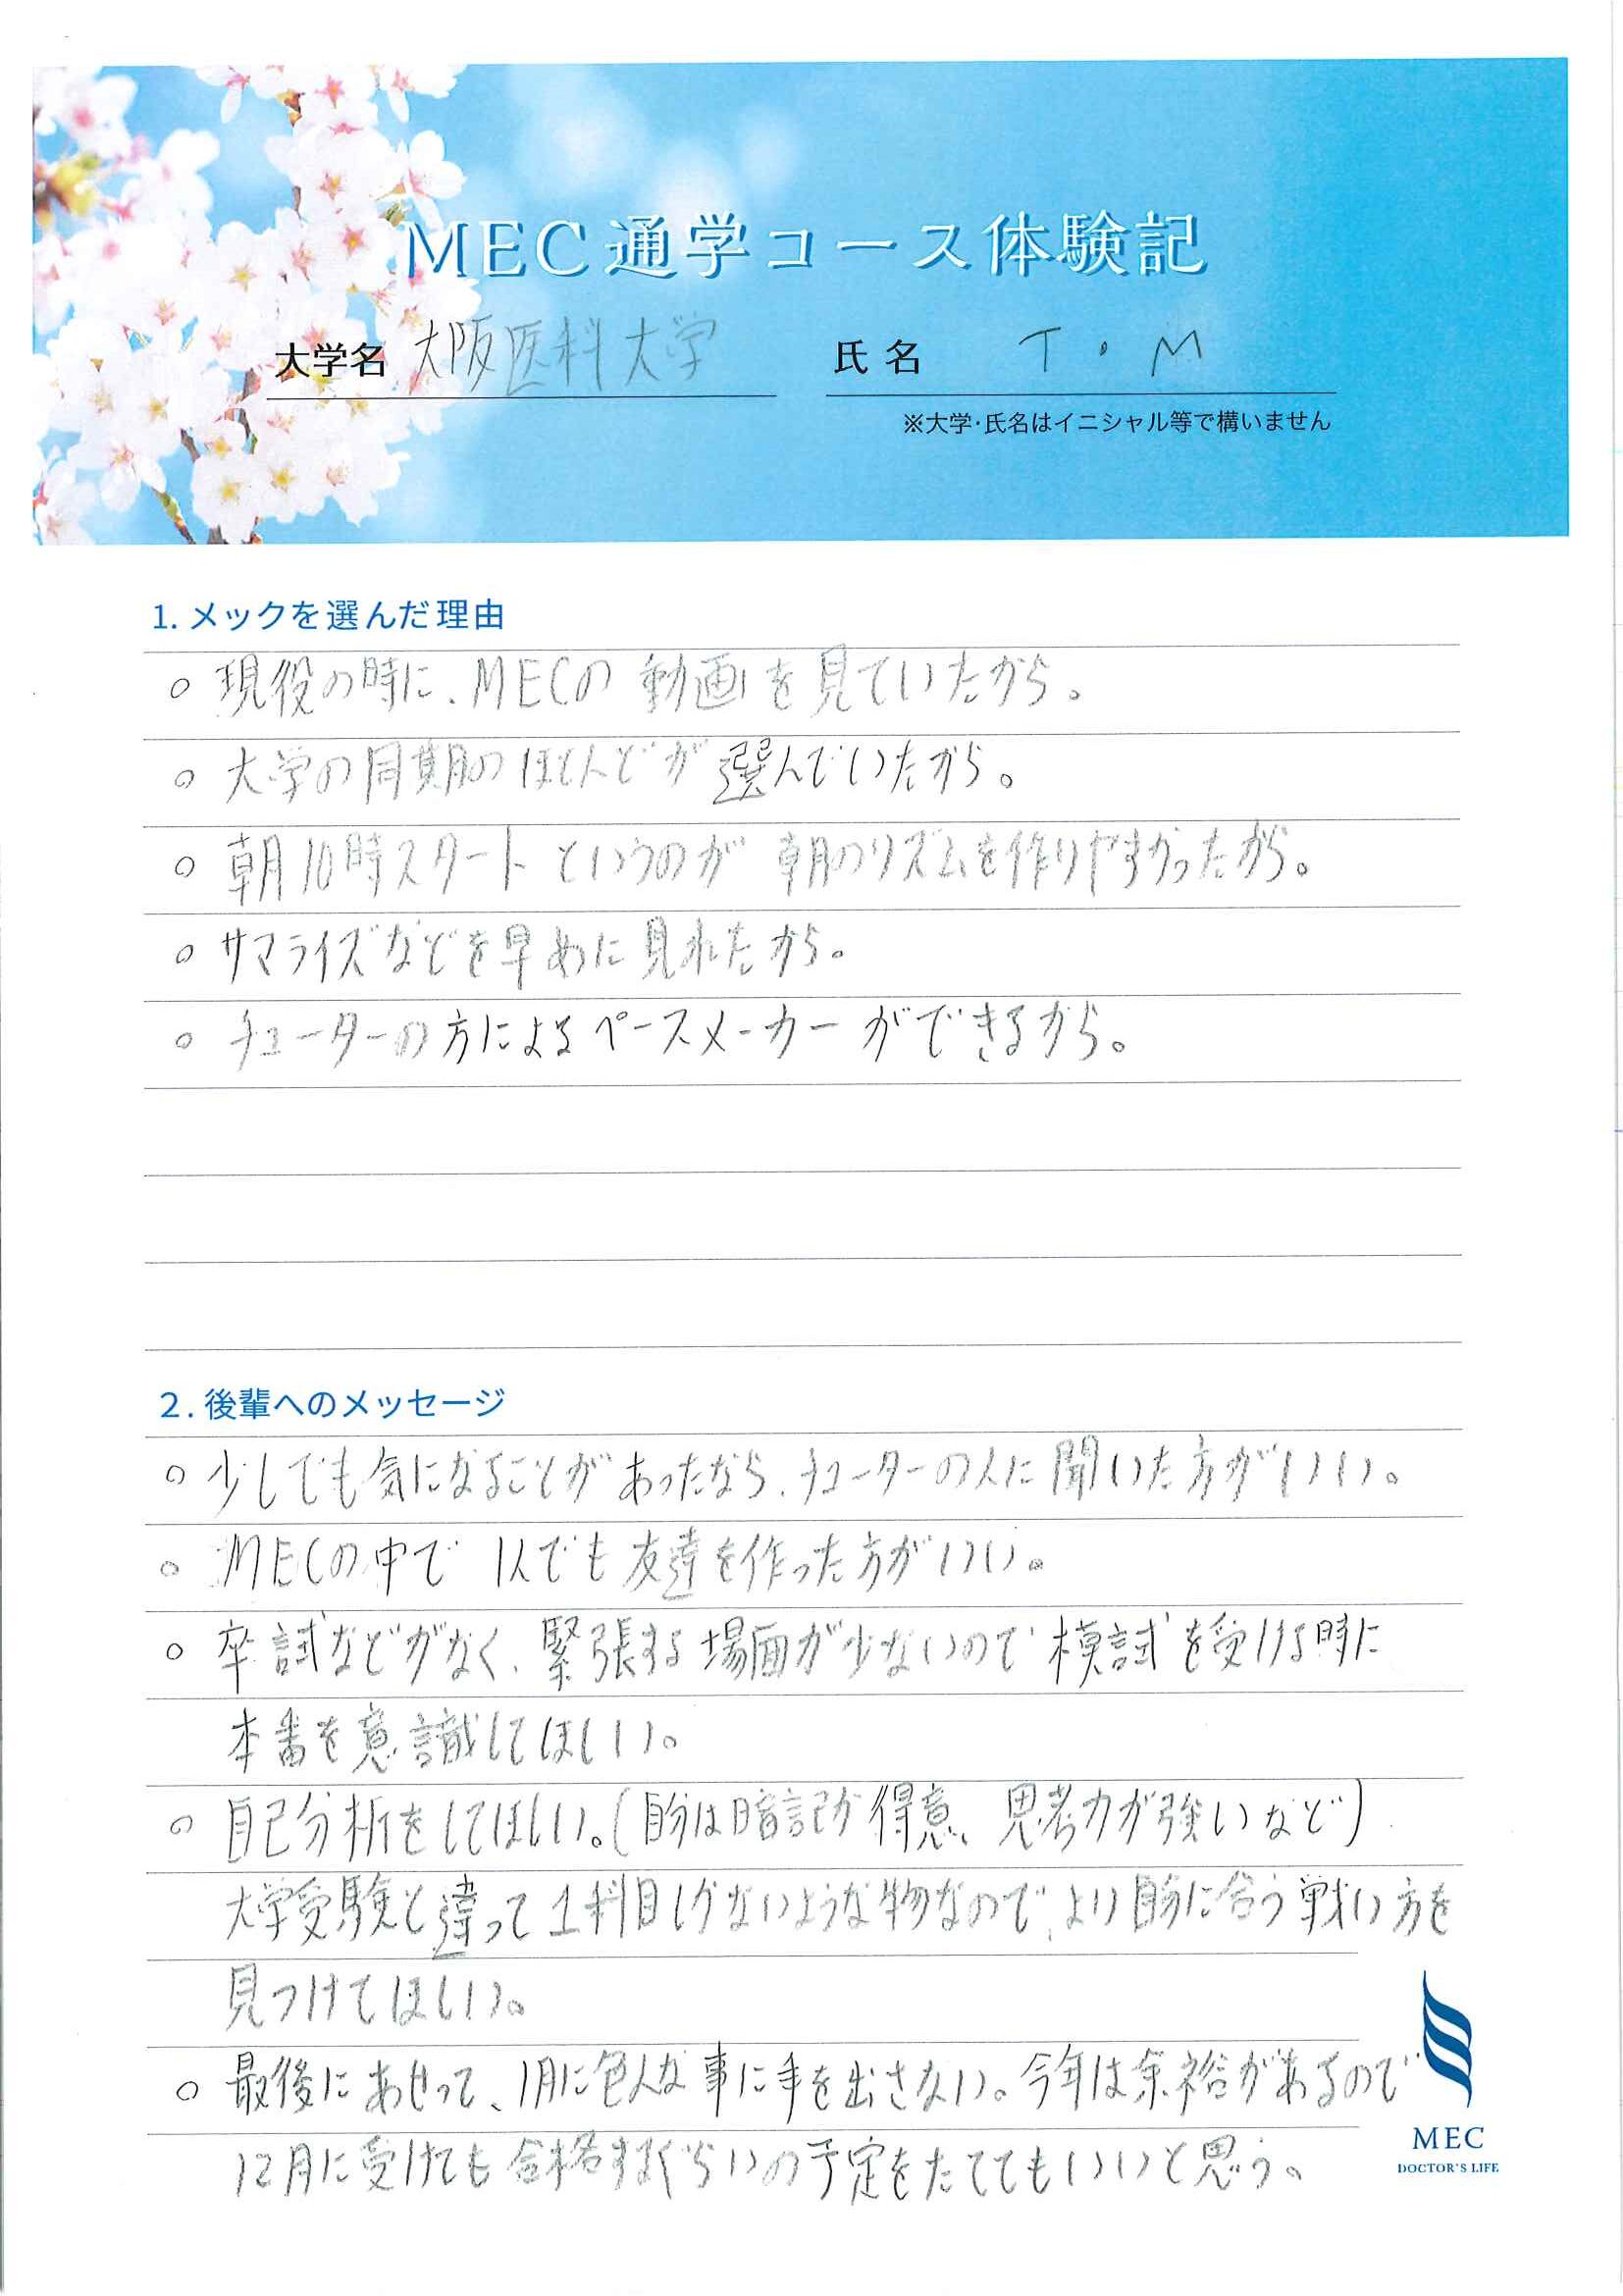 MEC通学コース体験記
大学名 大阪医科大学 氏名 T・M
※大学・氏名はイニシャル等で構いません
1. メックを選んだ理由
○ 現役の時に、MECの動画を見ていたから。
○ 大学の同期のほとんどが選んでいたから。
○ 朝10時スタートというのが朝のリズムを作りやすかったから。
○ サマライズなどを早めに見れたから。
○ チューターの方によるペースメーカーができるから。
2. 後輩へのメッセージ
○ 少しでも気になることがあったなら、チューターの人に聞いた方がいい。
○ MECの中で1人でも友達を作った方がいい。
○ 卒試などがなく、緊張する場面が少ないので模試を受ける時に
本番を意識してほしい。
○ 自己分析をしてほしい。(自分は暗記が得意、思考力が強いなど)
大学受験と違って1科目しかないような物なので、より自分に合う戦い方を
見つけてほしい。
○ 最後にあせって、1月に色んな事に手を出さない。今年は余裕があるので
12月に受けても合格するぐらいの予定をたててもいいと思う。
MEC
DOCTOR'S LIFE